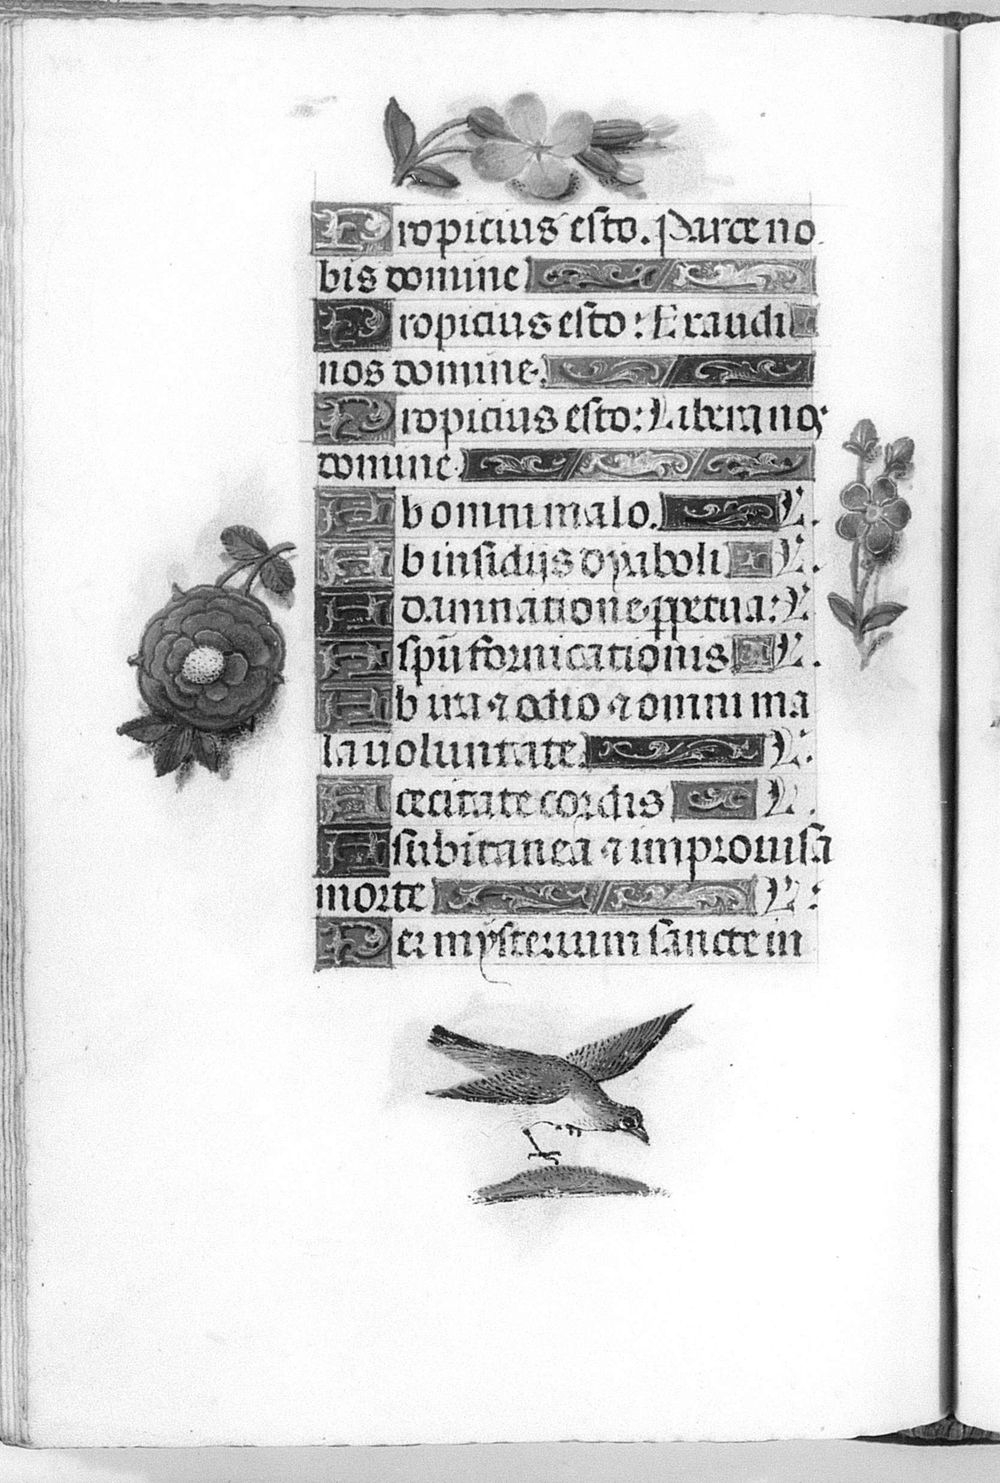 Propicius esto. Parce no
bis domine
Propicius esto: Exaudi
nos domine.
Propicius esto: Libera nos
domine.
Ab omni malo. L.
Ab insidijs dyaboli L.
A damnatione ppetua: L
A spū fornicationis L.
Ab ira ⁊ odio ⁊ omni ma
la voluntate L.
A cecitate cordis L.
A subitanea ⁊ improuisa
morte L:
Per mysterium sancte in